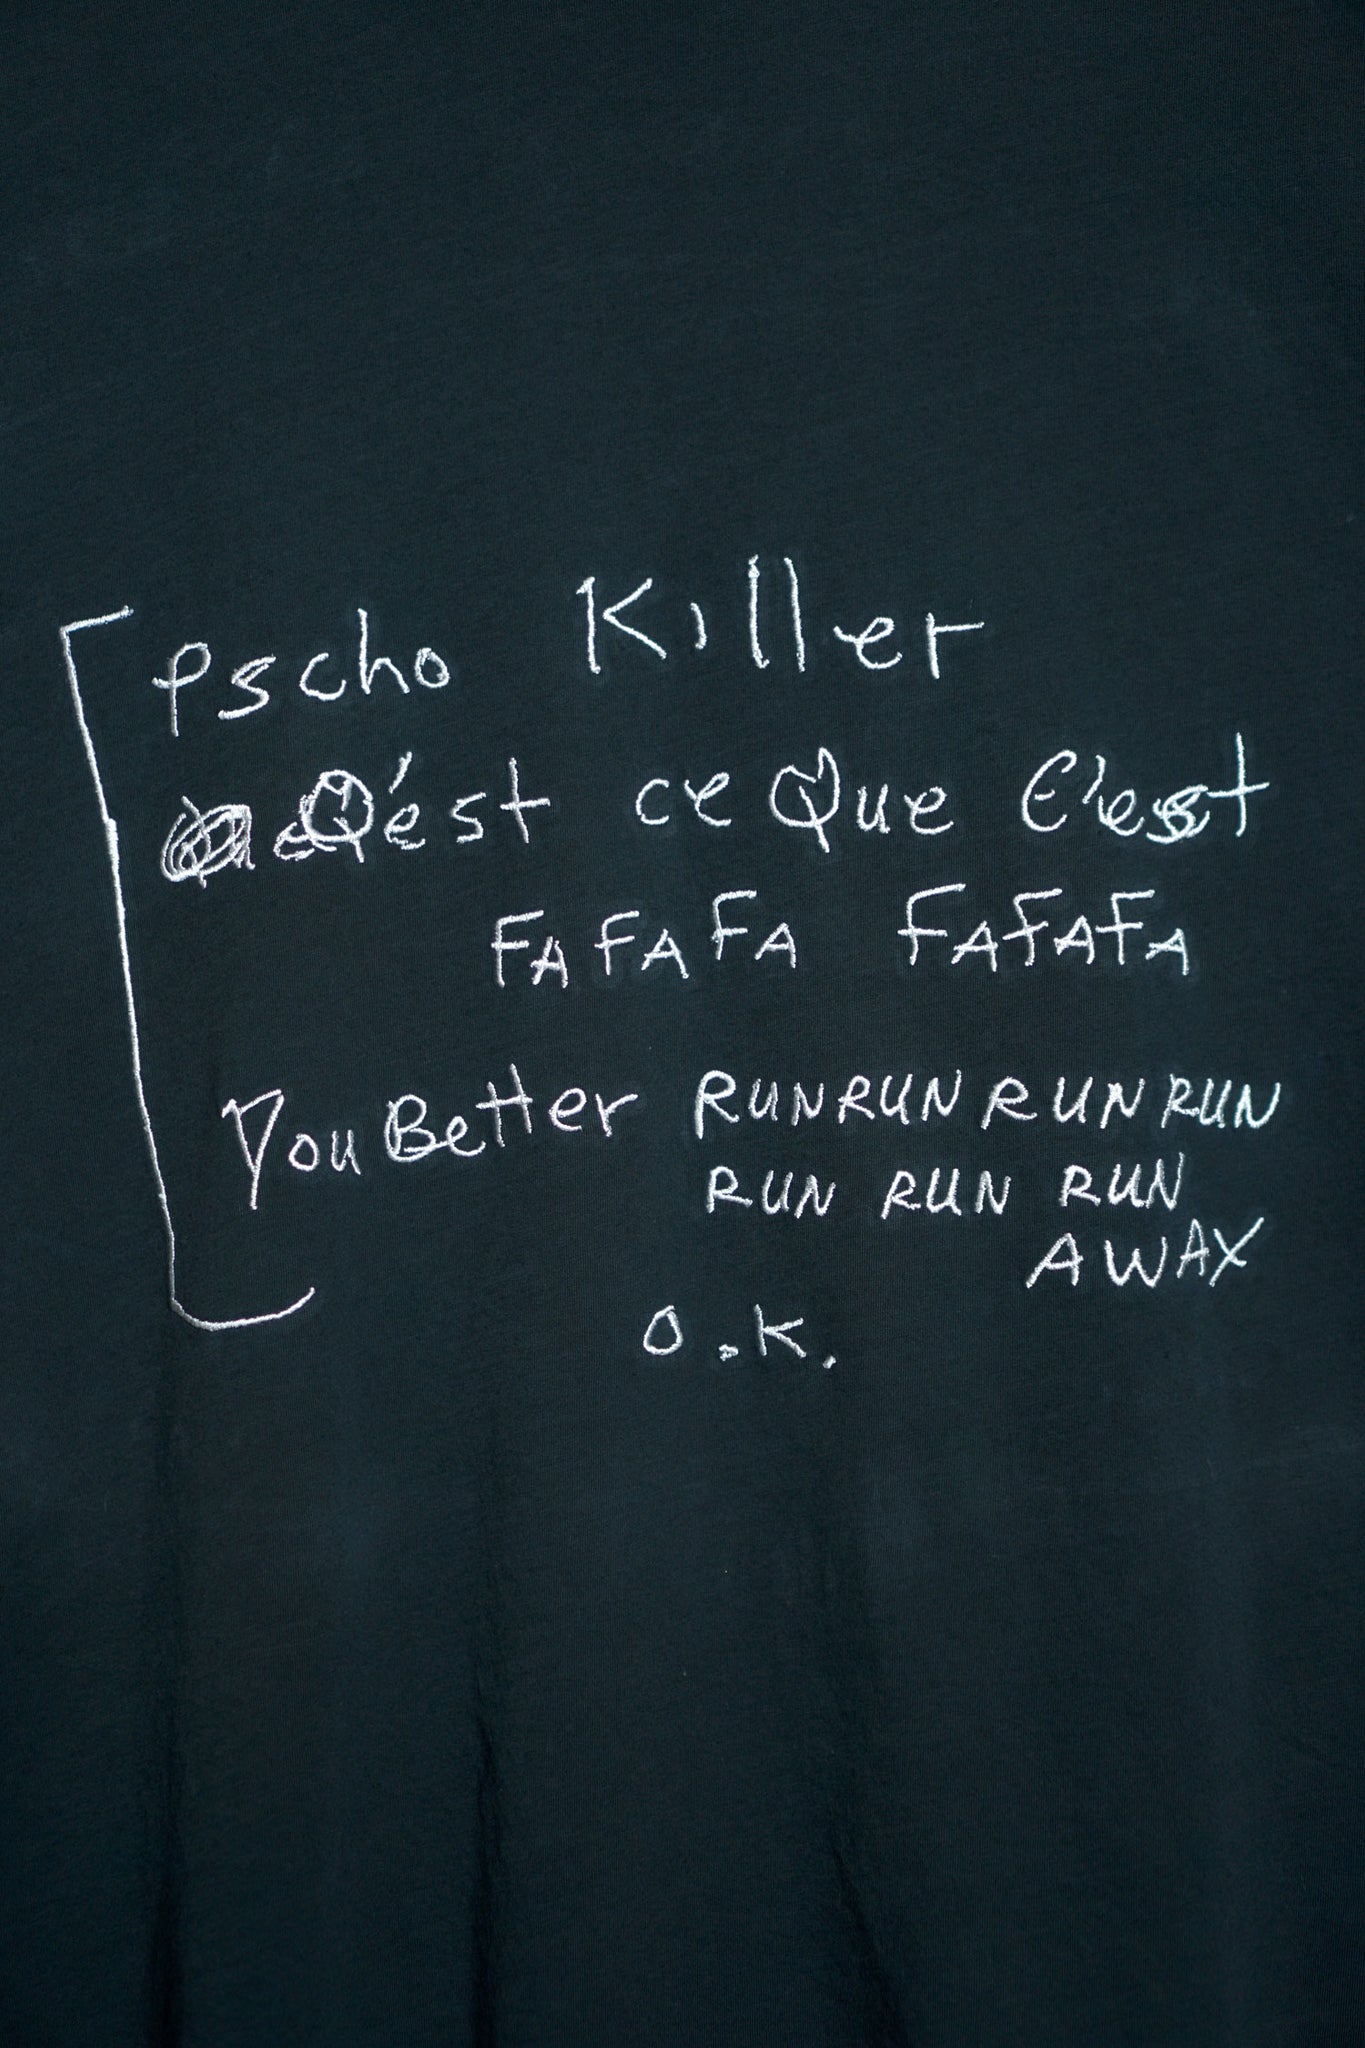 Pscho Killer
Q'est ce Que C'est
FA FA FA FAFAFA
You Better RUN RUN RUN RUN
RUN RUN RUN
AWAY
O.K.